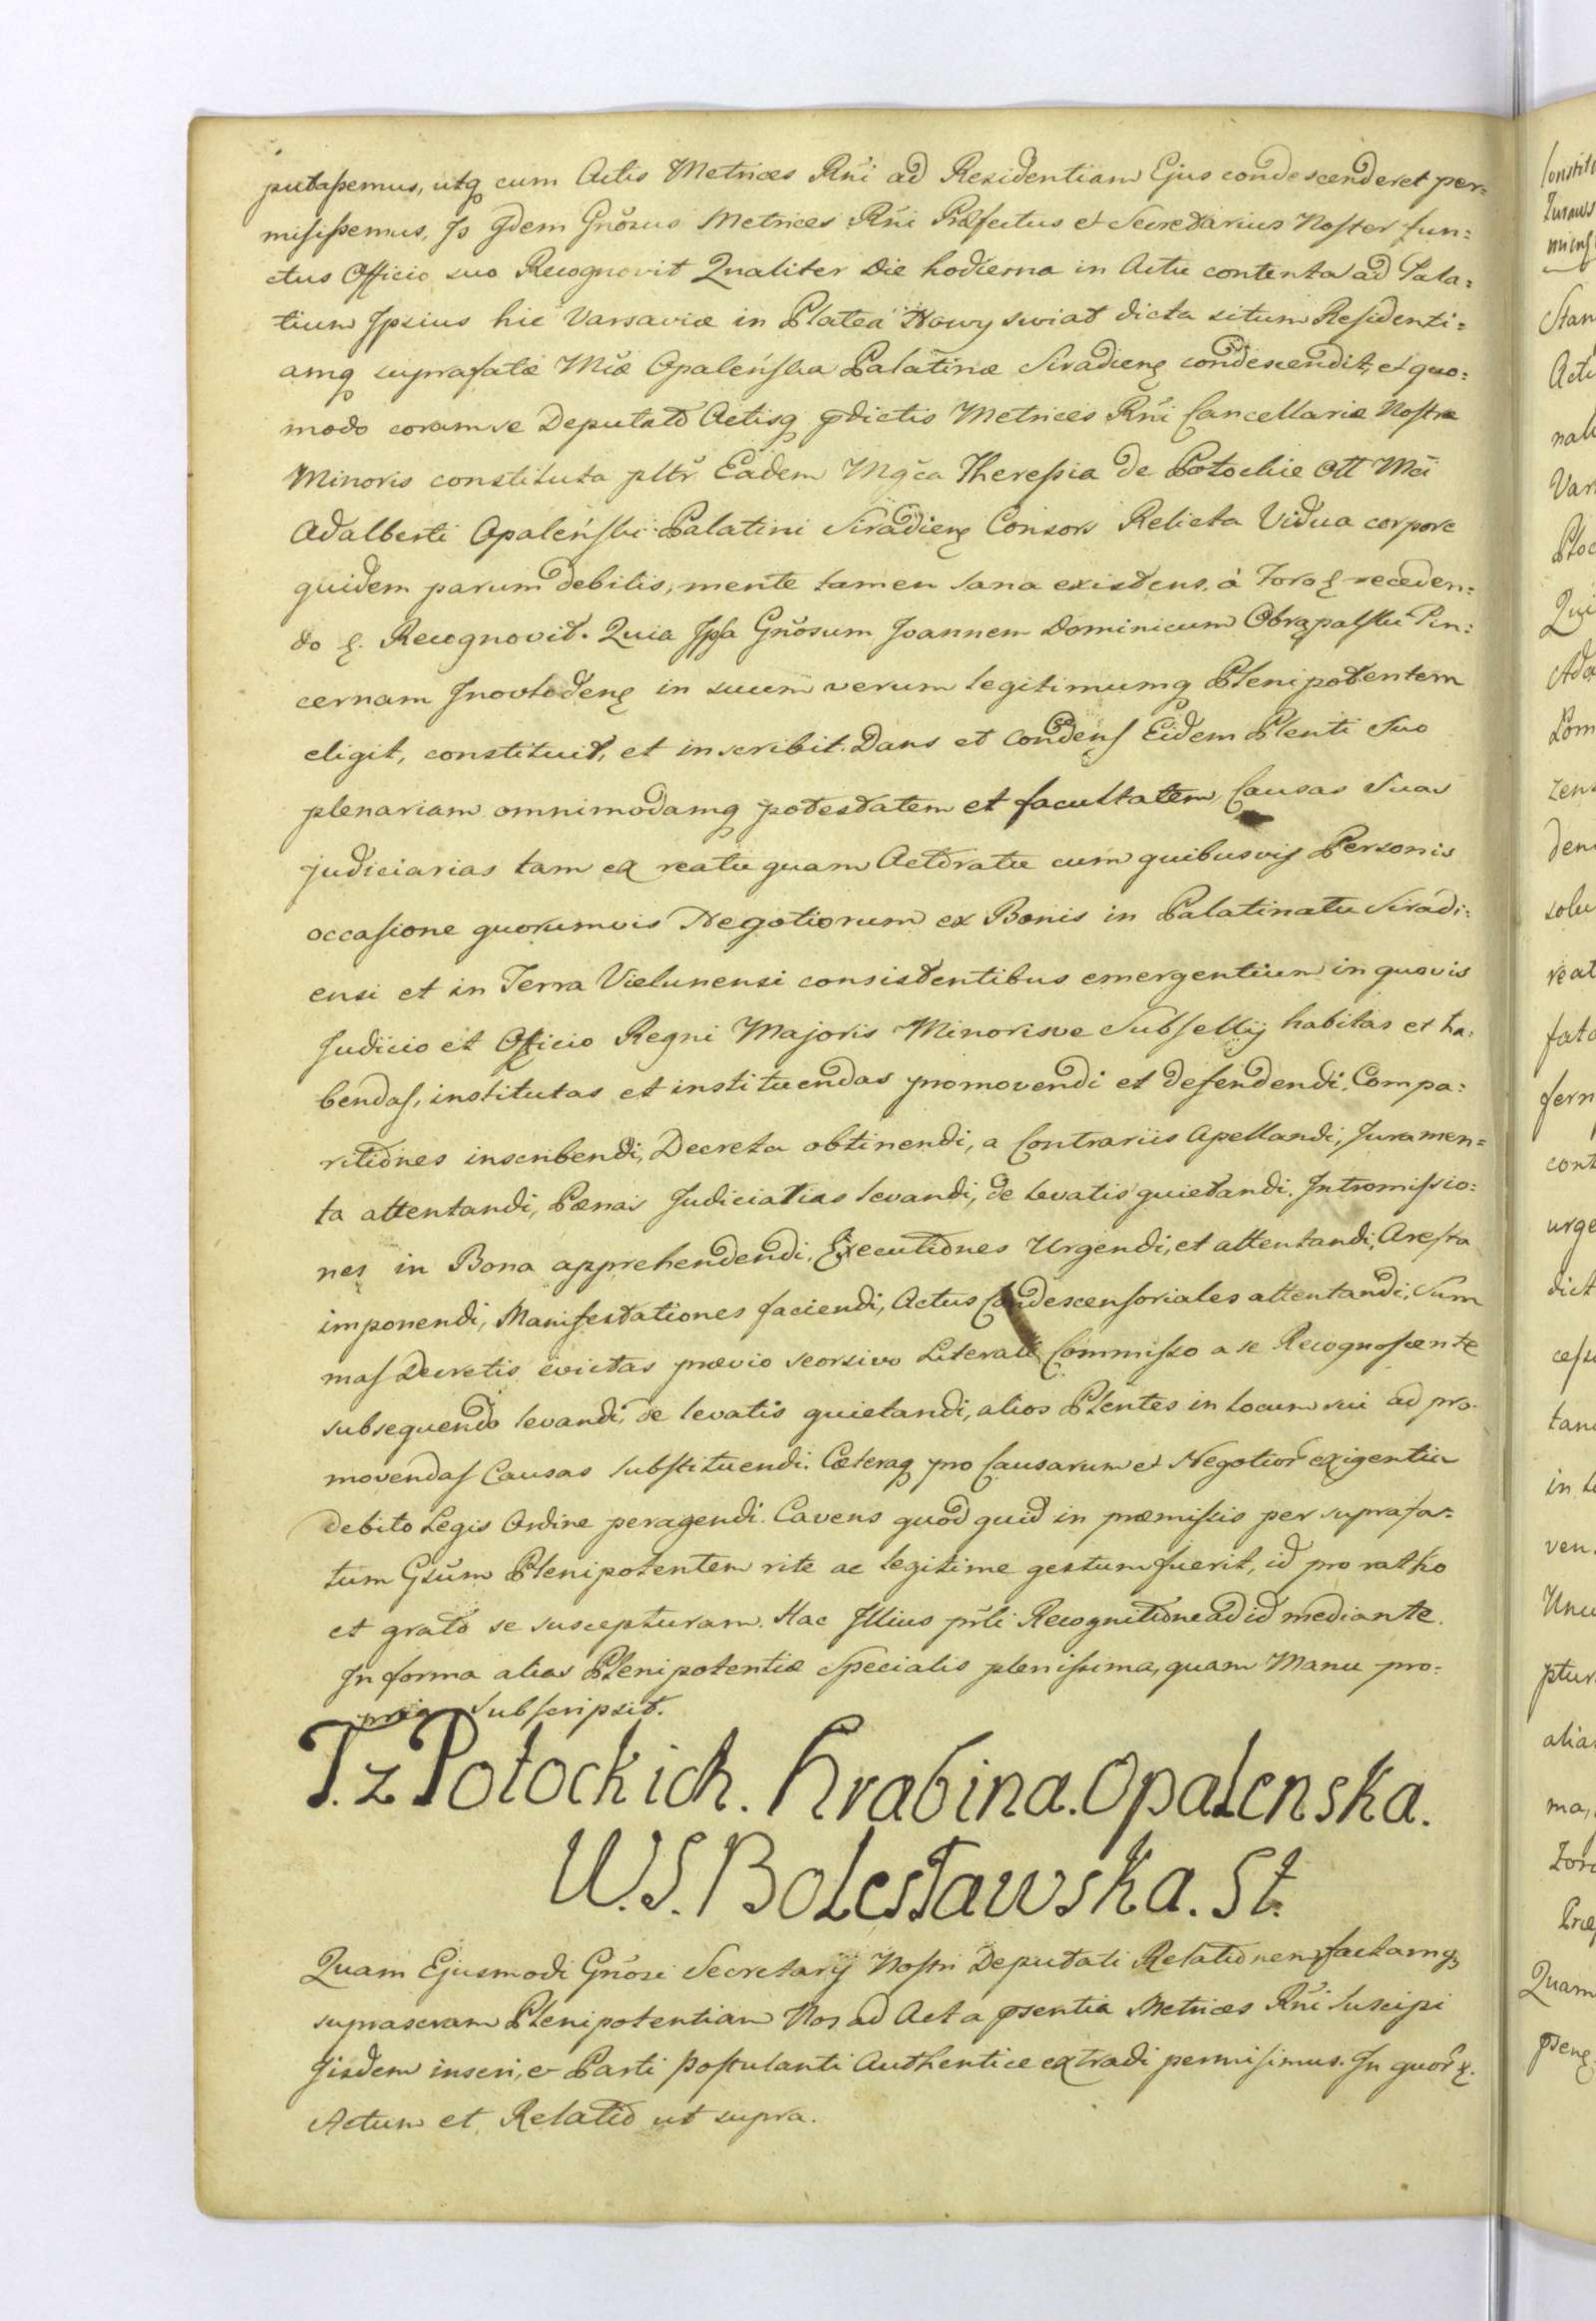 putassemus, utq cum Actis Metrices Rni ad Residentiam Ejus condescenderet per=
misissemus, Is qdem Gnosus Metrices Rni Præfectus et Secretarius Noster fun=
ctus Officio suo Recognovit Qualiter Die hodierna in Actu contenta ad Pala=
tium Ipsius hic Varsaviæ in Platea Nowy swiat dicta situm Residenti=
amq suprafatæ Mcæ Opaleńska Palatinæ Siradien condescendit, et quo=
modo coram se Deputato Actisq pdictis Metrices Rni Cancellariæ Nostræ
Minoris constituta pltr Eadem Mgca Theressia de Potockie Ott Mci
Adalberti Opaleński Palatini Siradien Consors Relicta Vidua corpore
quidem parum debilis, mente tamen sana existens. à Foro receden=
do Recognovit. Quia Ipsa Gnosum Joannem Dominicum Obrąpalski Pin=
cernam Inovloden in suum verum legitimumq Plenipotentem
eligit, constituit, et inscribit. Dans et condens Eidem Plenti Suo
plenariam omnimodamq potestatem et facultatem, Causas Suas
judiciarias tam ex reatu quam Actoratu cum quibusvis Personis
occasione quorumvis Negotiorum ex Bonis in Palatinatu Siradi=
ensi et in Terra Vielunensi consistentibus emergentium in quovis
Judicio et Officio Regni Majoris Minorisve Subsellij habitas et ha=
bendas, institutas et instituendas promovendi et defendendi, Compa=
ritiones inscribendi, Decreta obtinendi, a Contrariis Apellandi, Juramen=
ta attentandi, Pænas Judiciarias levandi, de levatis quietandi. Intromissio=
nes in Bona apprehendendi, Executiones Urgendi, et attentandi, Aresta
imponendi, Manifestationes faciendi, Actus Condescensoriales attentandi, Sum
mas Decretis evictas prævio seorsivo Literali Commisso a se Recognoscente
subsequendo levandi, de levatis quietandi, alios Plentes in locum sui ad pro=
movendas Causas substituendi. Cæteraq pro Causarum et Negotior exigentia
debito Legis Ordine peragendi. Cavens quod quid in præmissis per suprafa=
tum Gsum Plenipotentem rite ac legitime gestum fuerit, id pro ratho
et grato se suscepturam. Hac Illius prli Recognitione ad id mediante.
In forma alias Plenipotentiæ Specialis plenissima, quam Manu pro=
pria Subscripsit.
T. z Potockich. Hrabina. Opalenska.
W. S. Bolesławska. St.
Quam Ejusmodi Gnosi Secretarij Nostri Deputati Relationem, factamq
suprascram Plenipotentiam Nos ad Acta psentia Metrices Rni Suscipi
Iisdem inseri, e Parti Postulanti Authentice extradi permisimus. In quor
Actum et Relatio ut supra.